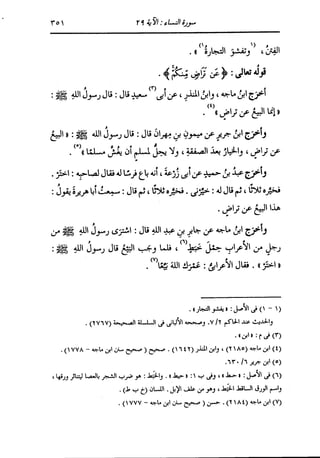 سورة النساء : الآية ٢٩ ٣٥١
الفتن ، (١)وتفشو التجارة(١)» .
قوله تعالى : ﴿عَن تَرَاضٍ مِّنكُمْ﴾ .
أخرج ابنُ ماجه ، وابنُ المنذرِ ، عن أبى(٣) سعيدٍ قال : قال رسولُ اللهِ ﷺ :
«إنما البيعُ عن تراضٍ»(٤) .
وأخرج ابنُ جريرٍ عن ميمونِ بنِ مِهرانَ قال : قال رسولُ اللهِ ﷺ : «البيعُ
عن تراضٍ ، والخيارُ بعدَ الصفقةِ ، ولا يحِلُّ لمسلمٍ أن يغُشَّ مسلمًا»(٥) .
وأخرج عبدُ بنُ حميدٍ عن أبى زُرْعةَ ، أنه باع فرسًا له فقال لصاحبِه : اختَرْ .
فخيَّره ثلاثًا ، ثم قال له : خيِّرنى . فخيَّره ثلاثًا ، ثم قال : سمِعتُ أبا هريرةَ يقولُ :
هذا البيعُ عن تراضٍ .
وأخرج ابنُ ماجه عن جابرِ بنِ عبدِ اللهِ قال : اشترَى رسولُ اللهِ ﷺ من
رجلٍ من الأعرابِ حِمْلَ خَبَطٍ(٦) ، فلما وجَب البيعُ قال رسولُ اللهِ ﷺ :
«اختَرْ» . فقال الأعرابىُّ : عَمْرَك اللهَ بَيِّعًا(٧) .
(١ - ١) فى الأصل : «يفشو التجار» .
والحديث عند الحاكم ٧/٢. وصححه الألبانى فى السلسلة الصحيحة (٢٧٦٧) .
(٣) فى م : «ابن» .
(٤) ابن ماجه (٢١٨٥) ، وابن المنذر (١٦٤٢) . صحيح (صحيح سنن ابن ماجه - ١٧٧٨) .
(٥) ابن جرير ٦/ ٦٣٠.
(٦) فى الأصل : «حنطة» ، وفى ب ١: «حبط» . والخبط : هو ضرب الشجر بالعصا ليتناثر ورقها ،
واسم الورق الساقط الخبط ، وهو من علف الإبل . اللسان (خ ب ط) .
(٧) ابن ماجه (٢١٨٤) . حسن (صحيح سنن ابن ماجه - ١٧٧٧) .